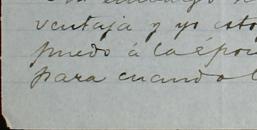 embargo
ventaja y yo esto
puedo á la époc
para cuando l